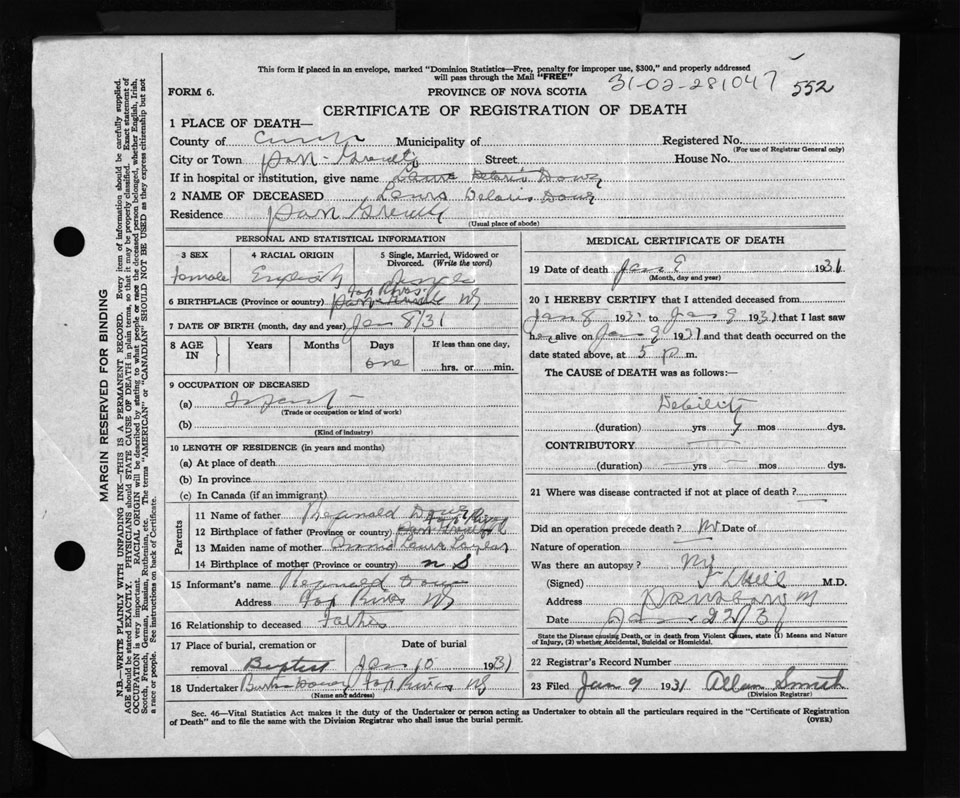 This form if placed in an envelope, marked "Dominion Statistics—Free, penalty for improper use, $300," and properly addressed
will pass through the Mail "FREE"
31-02-281047 552
FORM 6. PROVINCE OF NOVA SCOTIA
CERTIFICATE OF REGISTRATION OF DEATH
1 PLACE OF DEATH—
County of Municipality of Registered No.
(For use of Registrar General only)
City or Town Street House No.
If in hospital or institution, give name
2 NAME OF DECEASED Deloris
Residence
(Usual place of abode)
PERSONAL AND STATISTICAL INFORMATION
3 SEX 4 RACIAL ORIGIN 5 Single, Married, Widowed or Divorced. (Write the word)
female English Single
6 BIRTHPLACE (Province or country) NS
7 DATE OF BIRTH (month, day and year) Jan 8/31
8 AGE IN Years Months Days If less than one day,
one hrs. or min.
9 OCCUPATION OF DECEASED
(a) Infant
(Trade or occupation or kind of work)
(b)
(Kind of industry)
10 LENGTH OF RESIDENCE (in years and months)
(a) At place of death
(b) In province
(c) In Canada (if an immigrant)
Parents
11 Name of father Reginald
12 Birthplace of father (Province or country)
13 Maiden name of mother Taylor
14 Birthplace of mother (Province or country) N S
15 Informant's name Reginald
Address NS
16 Relationship to deceased Father
17 Place of burial, cremation or removal Date of burial
Baptist Jan 10 1931
18 Undertaker NS
(Name and address)
MEDICAL CERTIFICATE OF DEATH
19 Date of death Jan 9 1931
(Month, day and year)
20 I HEREBY CERTIFY that I attended deceased from
Jan 8 193 to Jan 9 1931 that I last saw
her alive on Jan 9 1931 and that death occurred on
date stated above, at 3 p m.
The CAUSE of DEATH was as follows:—
Debility
(duration) yrs mos dys.
CONTRIBUTORY
(duration) yrs mos dys.
21 Where was disease contracted if not at place of death?
Did an operation precede death? No Date of
Nature of operation
Was there an autopsy? No
(Signed) M.D.
Address
Date
State the Disease causing Death, or in death from Violent Causes, state (1) Means and Nature
of Injury, (2) whether Accidental, Suicidal or Homicidal.
22 Registrar's Record Number
23 Filed Jan 9 1931 Allan Smith
(Division Registrar)
Sec. 46—Vital Statistics Act makes it the duty of the Undertaker or person acting as Undertaker to obtain all the particulars required in the "Certificate of Registration
of Death" and to file the same with the Division Registrar who shall issue the burial permit. (OVER)
MARGIN RESERVED FOR BINDING
N.B.—WRITE PLAINLY WITH UNFADING INK—THIS IS A PERMANENT RECORD. Every item of information should be carefully supplied.
AGE should be stated EXACTLY. PHYSICIANS should STATE CAUSE OF DEATH in plain terms, so that it may be properly classified. Exact statement of
OCCUPATION is very important. RACIAL ORIGIN will be described by stating to what people or race the deceased person belonged, whether English, Irish,
Scotch, French, German, Russian, Ruthenian, etc. The terms "AMERICAN" or "CANADIAN" SHOULD NOT BE USED as they express citizenship but not
a race or people. See instructions on back of Certificate.